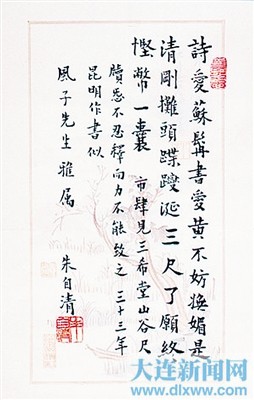 詩愛蘇髯書愛黃不妨嫵媚是
清剛攤頭蹀躞涎三尺了願終
慳幣一囊 市肆見三希堂山谷尺
牘愛不忍釋而力不能致之 三十三年
昆明作書似
風子先生雅属
朱自清
大连新闻网
www.dlxww.com